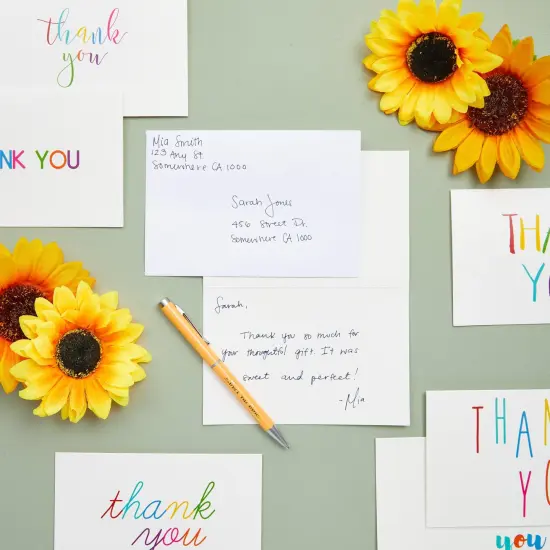 thank
you
NK YOU
Mia Smith
123 Any St.
Somewhere CA 1000
Sarah Jones
456 Street Dr.
Somewhere CA 1000
Sarah,
Thank you so much for
your thoughtful gift. It was
sweet and perfect!
-Mia
thank
you
THA
YO
THAN
YO
you